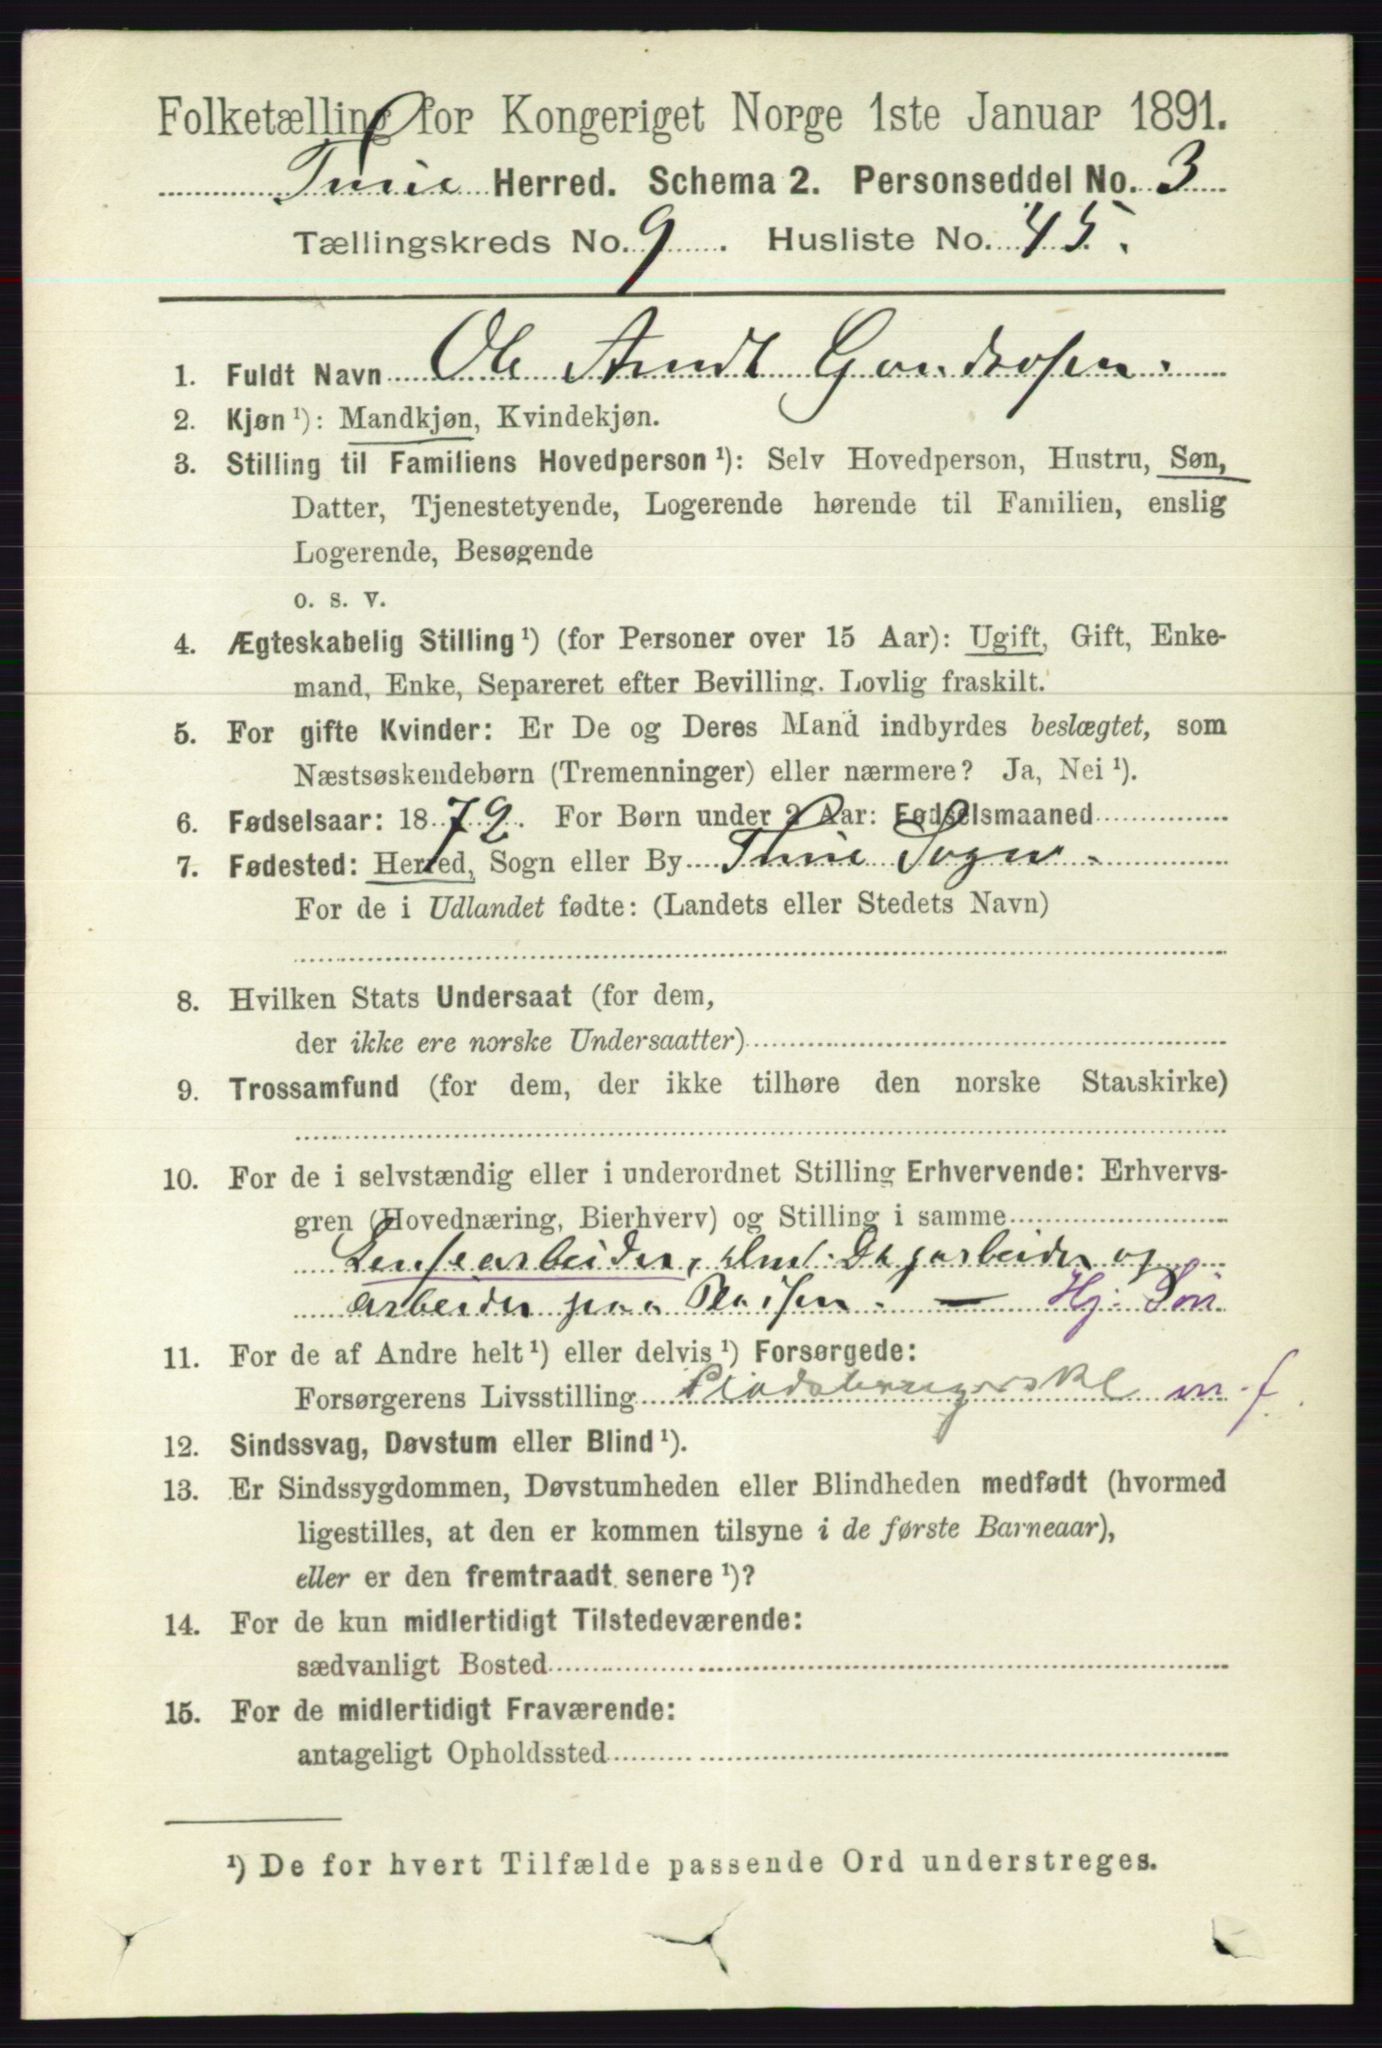 Folketælling for Kongeriget Norge 1ste Januar 1891.
Tune Herred. Schema 2. Personseddel No. 3
Tællingskreds No. 9. Husliste No. 45.
1. Fuldt Navn Ole Arndt
2. Kjøn ¹): Mandkjøn, Kvindekjøn.
3. Stilling til Familiens Hovedperson ¹): Selv Hovedperson, Hustru, Søn,
Datter, Tjenestetyende, Logerende hørende til Familien, enslig
Logerende, Besøgende
o. s. v.
4. Ægteskabelig Stilling ¹) (for Personer over 15 Aar): Ugift, Gift, Enke-
mand, Enke, Separeret efter Bevilling. Lovlig fraskilt.
5. For gifte Kvinder: Er De og Deres Mand indbyrdes beslægtet, som
Næstsøskendebørn (Tremenninger) eller nærmere? Ja, Nei ¹).
6. Fødselsaar: 1872. For Børn under 2 Aar: Fødselsmaaned
7. Fødested: Herred, Sogn eller By Thune Sogn.
For de i Udlandet fødte: (Landets eller Stedets Navn)
8. Hvilken Stats Undersaat (for dem,
der ikke ere norske Undersaatter)
9. Trossamfund (for dem, der ikke tilhøre den norske Statskirke)
10. For de i selvstændig eller i underordnet Stilling Erhvervende: Erhvervs-
gren (Hovednæring, Bierhverv) og Stilling i samme
Lensearbeider, Dagarbeider og
arbeider paa Pladsen. — Hj: Søn
11. For de af Andre helt ¹) eller delvis ¹) Forsørgede:
Forsørgerens Livsstilling m. f.
12. Sindssvag, Døvstum eller Blind ¹).
13. Er Sindssygdommen, Døvstumheden eller Blindheden medfødt (hvormed
ligestilles, at den er kommen tilsyne i de første Barneaar),
eller er den fremtraadt senere ¹)?
14. For de kun midlertidigt Tilstedeværende:
sædvanligt Bosted
15. For de midlertidigt Fraværende:
antageligt Opholdssted
¹) De for hvert Tilfælde passende Ord understreges.